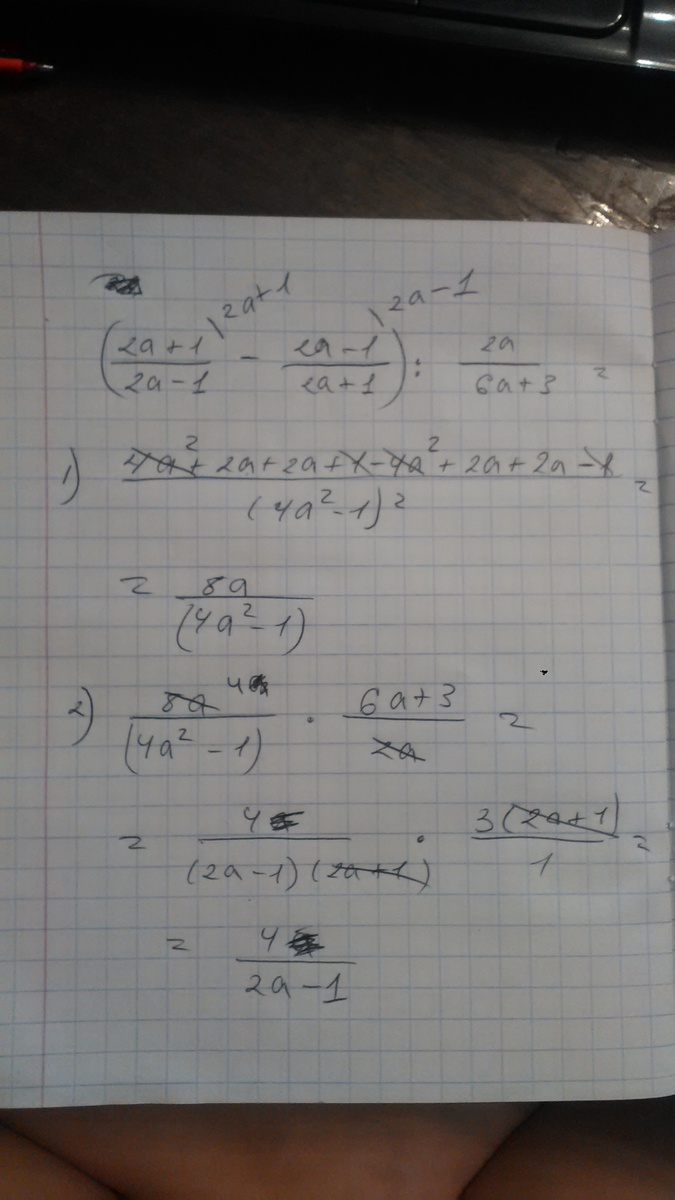 2a+1 2a-1
(2a+1/2a-1 - 2a-1/2a+1) : 2a/6a+3 =
1) 4a²+2a+2a+1-4a²+2a+2a-1/(4a²-1)² =
= 8a/(4a²-1)
2) 8a 4/(4a²-1) · 6a+3/2a =
= 4/(2a-1)(2a+1) · 3(2a+1)/1 =
= 4/2a-1